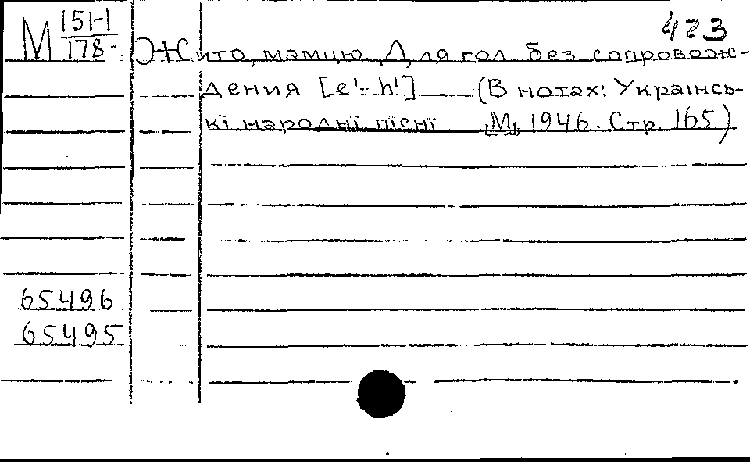 423
М 151-1
178-
Жито, мамцю. Для гол. без сопровож-
дения [e'-h'] (В нотах: Українсь-
кі народні пісні М, 1946. Стр. 165)
65496
65495